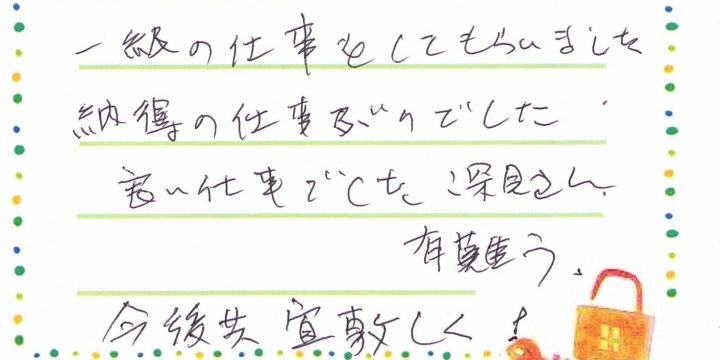 一級の仕事をしてもらいました
納得の仕事ぶりでした
良い仕事でした 深見さん.
有難う.
今後共 宜敷しく!